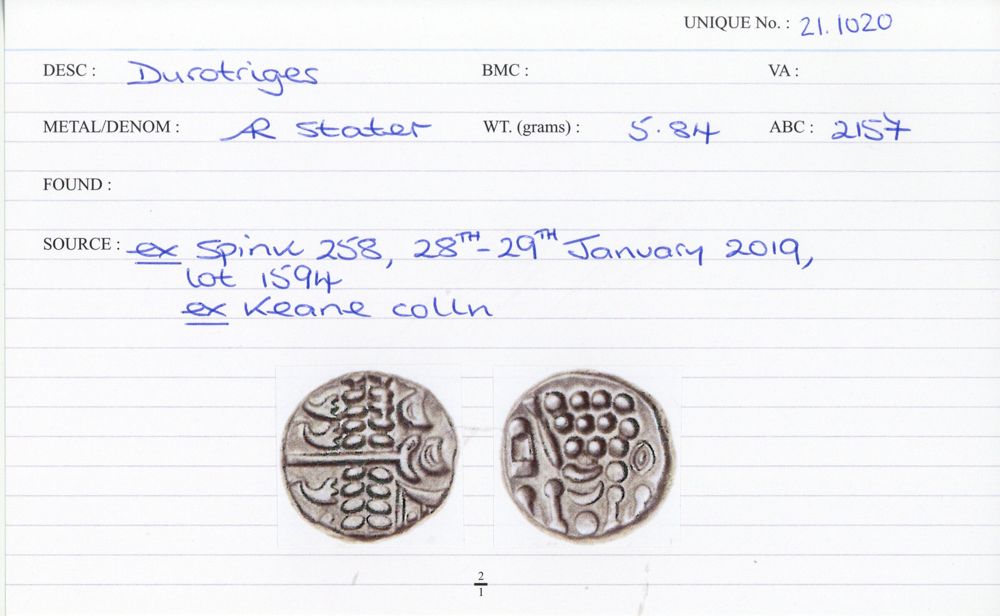 UNIQUE No. : 21.1020
DESC : Durotriges BMC : VA :
METAL/DENOM : AR Stater WT. (grams) : 5.84 ABC : 2157
FOUND :
SOURCE : ex Spink 258, 28TH-29TH January 2019,
lot 1594
ex Keane colln
2
1